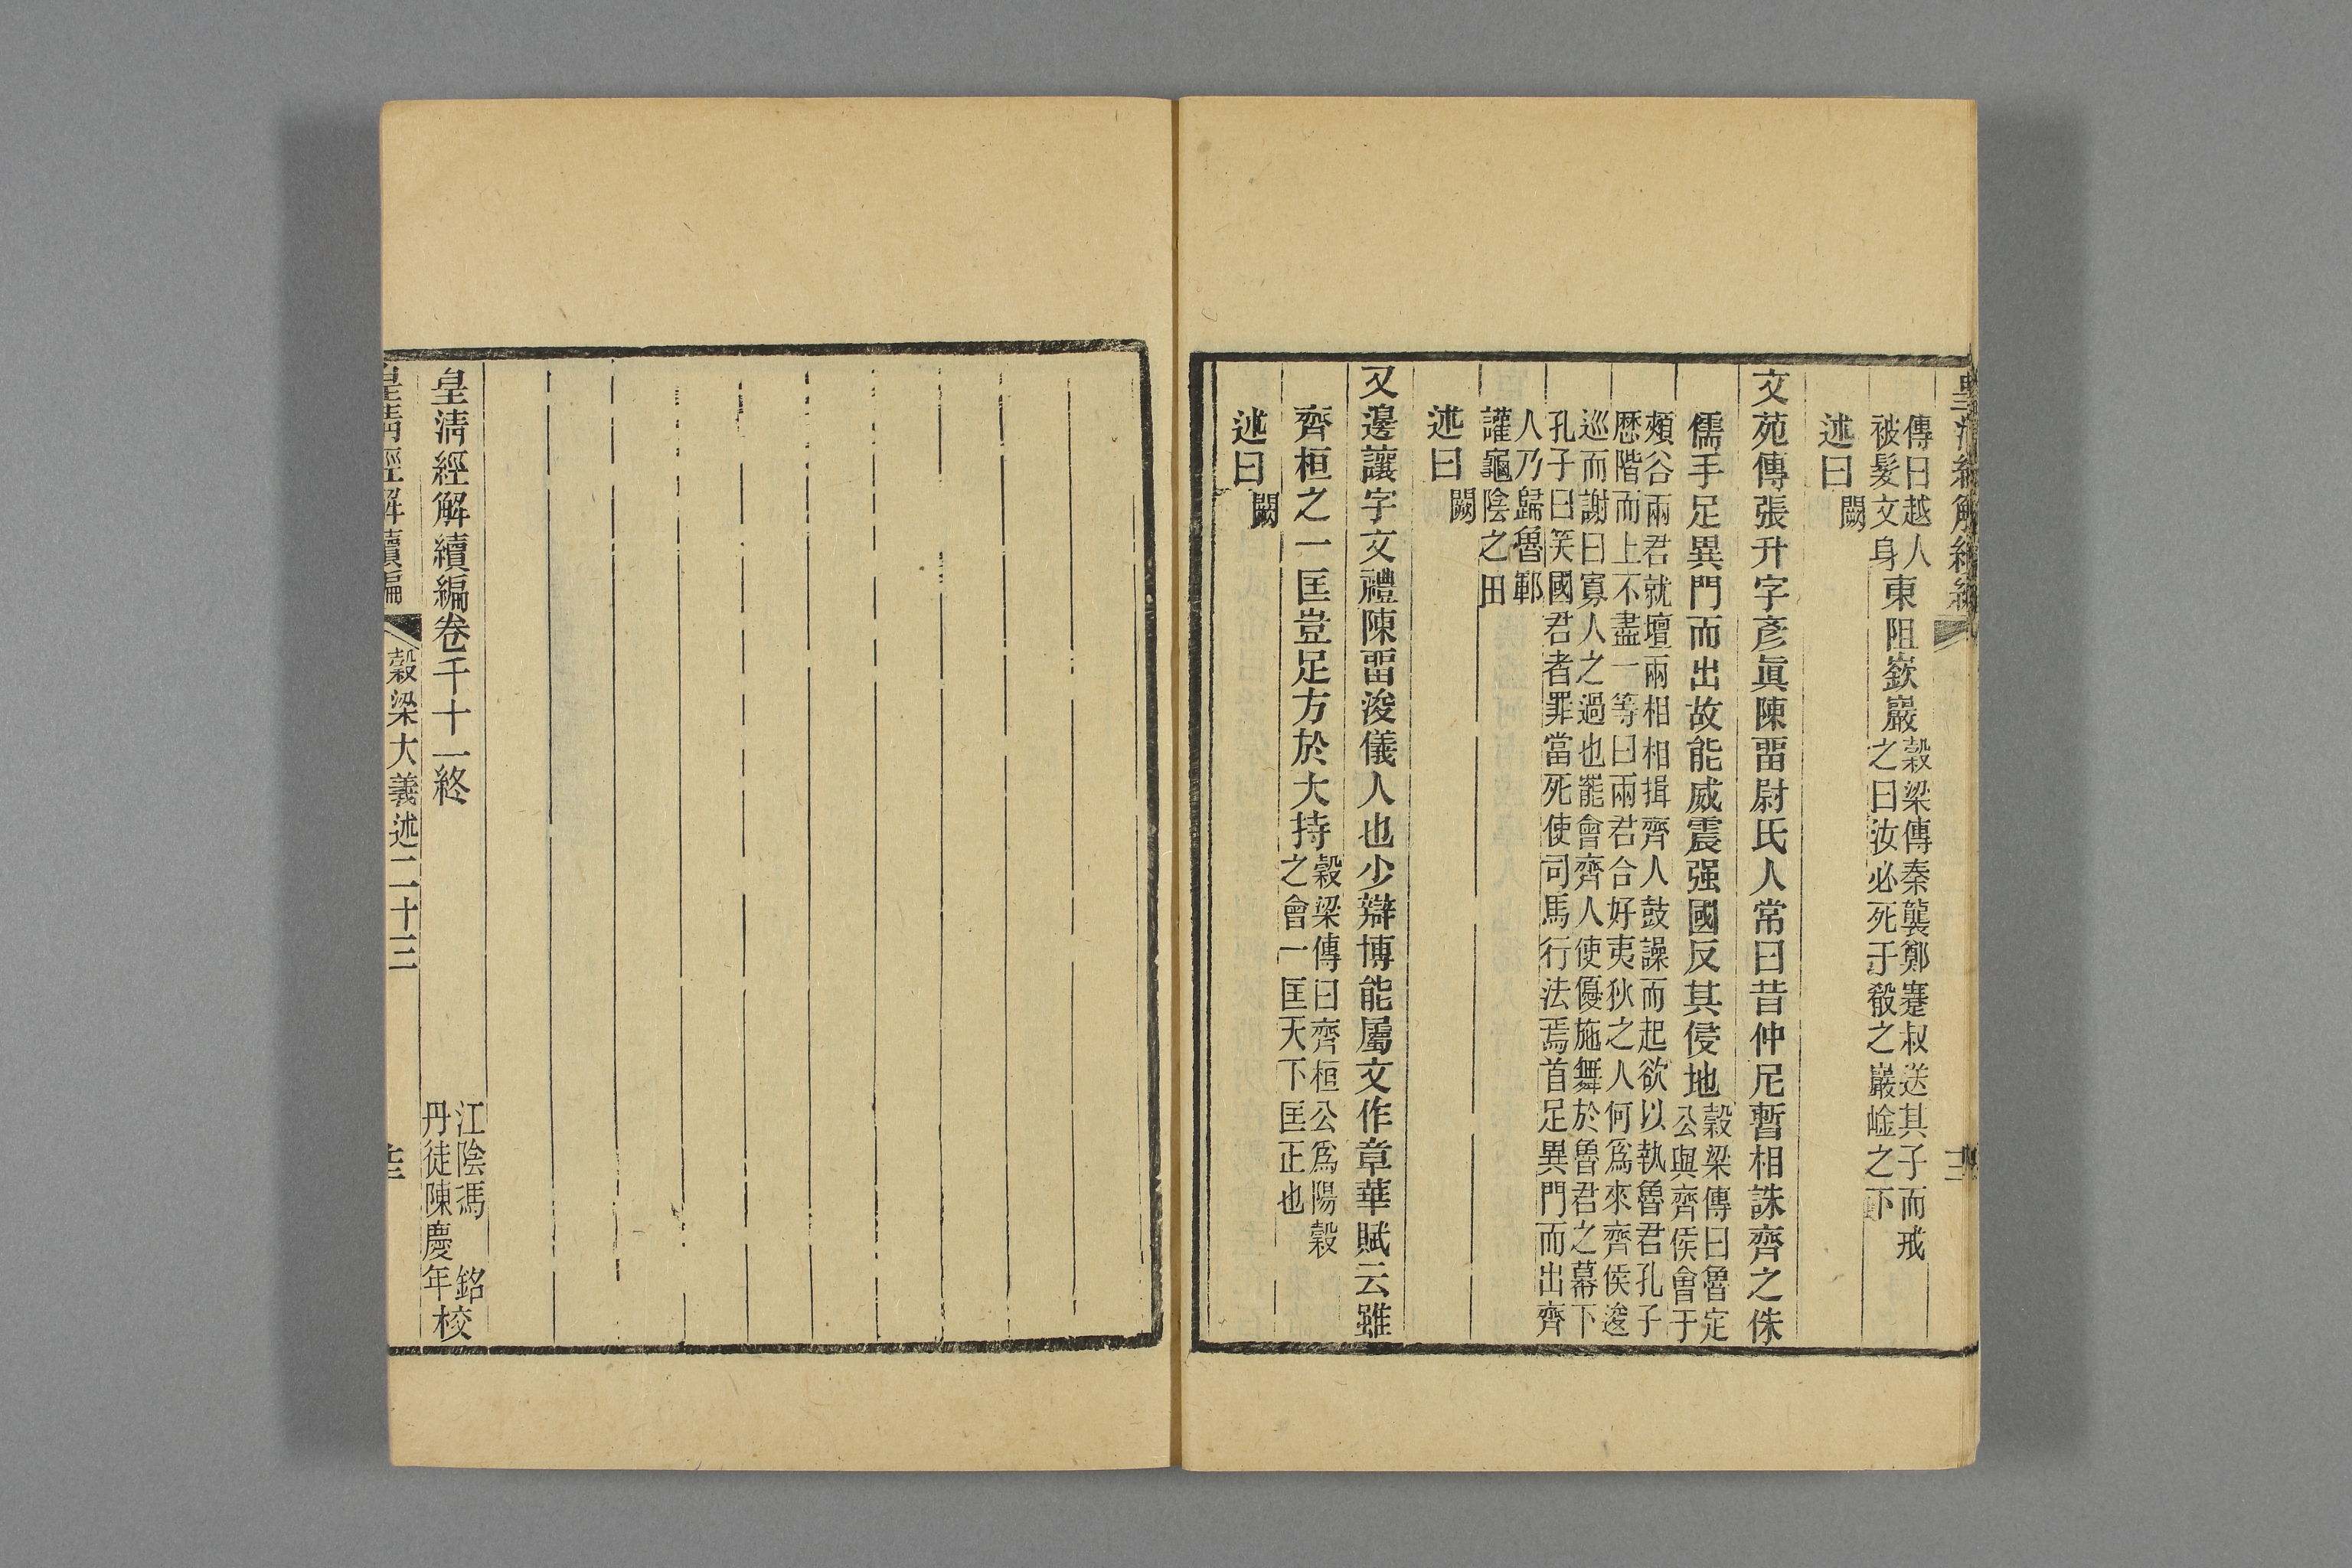 皇清經解續編
傳曰越人
被髮文身
東阻嶔巖
穀梁傳秦襲鄭蹇叔送其子而戒
之曰汝必死于殽之巖崯之下
述曰闕
文苑傳張升字彥眞陳畱尉氏人常曰昔仲尼暫相誅齊之侏
儒手足異門而出故能威震强國反其侵地
穀梁傳曰魯定
公與齊侯會于
頰谷兩君就壇兩相相揖齊人鼓譟而起欲以執魯君孔子
歷階而上不盡一等曰兩君合好夷狄之人何爲來齊侯逡
巡而謝曰寡人之過也罷會齊人使優施舞於魯君之幕下
孔子曰笑國君者罪當死使司馬行法焉首足異門而出齊
人乃歸魯鄆
讙龜陰之田
述曰闕
又邊讓字文禮陳畱浚儀人也少辯博能屬文作章華賦云雖
齊桓之一匡豈足方於大持
穀梁傳曰齊桓公爲陽穀
之會一匡天下匡正也
述曰闕
皇清經解續編卷千十一終
江陰馮銘
丹徒陳慶年
校
皇清經解續編
穀梁大義述二十三